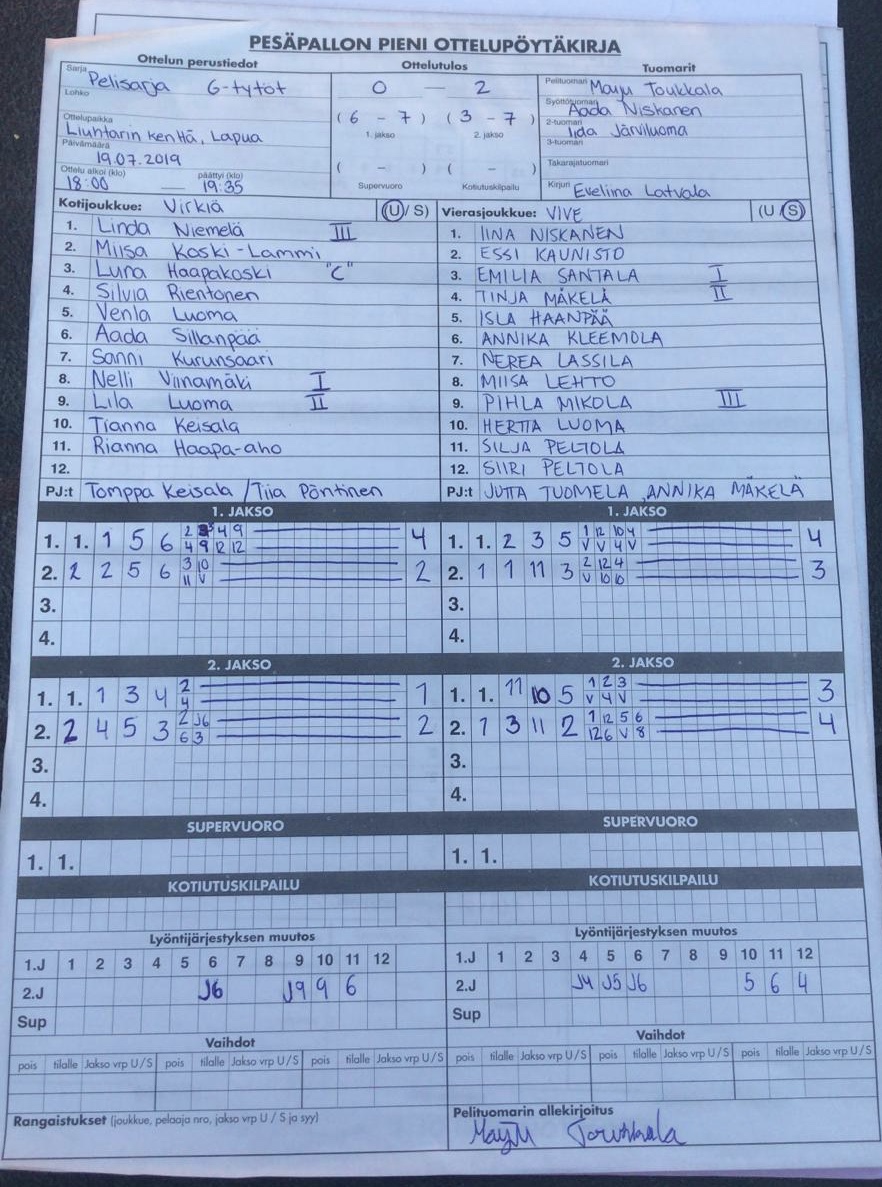 PESÄPALLON PIENI OTTELUPÖYTÄKIRJA
Ottelun perustiedot Ottelutulos Tuomarit
Sarja Pelisarja G-tytöt 0 — 2 Pelituomari Mayju Toukkala
Lohko Syöttötuomari Aada Niskanen
Ottelupaikka Liuhtarin kenttä, Lapua (6 - 7) (3 - 7) 2-tuomari Iida Järviluoma
1. jakso 2. jakso 3-tuomari
Päivämäärä 19.07.2019 Takarajatuomari
Ottelu alkoi (klo) päättyi (klo) ( - ) ( - )
18:00 — 19:35 Supervuoro Kotiutuskilpailu Kirjuri Eveliina Latvala
Kotijoukkue: Virkiä (U / S) Vierasjoukkue: VIVE (U / S)
1. Linda Niemelä III 1. IINA NISKANEN
2. Miisa Koski-Lammi 2. ESSI KAUNISTO
3. Luna Haapakoski "C" 3. EMILIA SANTALA I
4. Silvia Rientonen 4. TINJA MÄKELÄ II
5. Venla Luoma 5. ISLA HAANPÄÄ
6. Aada Sillanpää 6. ANNIKA KLEEMOLA
7. Sanni Kurunsaari 7. NEREA LASSILA
8. Nelli Viinamäki I 8. MIISA LEHTO
9. Lila Luoma II 9. PIHLA MIKOLA III
10. Tianna Keisala 10. HERTTA LUOMA
11. Rianna Haapa-aho 11. SILJA PELTOLA
12. 12. SIIRI PELTOLA
PJ:t Tomppa Keisala / Tiia Pöntinen PJ:t JUTTA TUOMELA, ANNIKA MÄKELÄ
1. JAKSO 1. JAKSO
1. 1. 1 5 6 2 4 9 4 1. 1. 2 3 5 1 12 10 4 4
4 9 12 12 V V 4 V
2. 2 2 5 6 3 10 2 2. 1 1 11 3 2 12 4 3
11 V V 10 10
3. 3.
4. 4.
2. JAKSO 2. JAKSO
1. 1. 1 3 4 2 1 1. 1. 11 10 5 1 2 3 3
4 V 4 V
2. 2 4 5 3 2 J6 2 2. 1 3 11 2 1 12 5 6 4
6 3 12 6 V 8
3. 3.
4. 4.
SUPERVUORO SUPERVUORO
1. 1. 1. 1.
KOTIUTUSKILPAILU KOTIUTUSKILPAILU
Lyöntijärjestyksen muutos Lyöntijärjestyksen muutos
1.J 1 2 3 4 5 6 7 8 9 10 11 12 1.J 1 2 3 4 5 6 7 8 9 10 11 12
2.J J6 J9 9 6 2.J J4 J5 J6 5 6 4
Sup Sup
Vaihdot Vaihdot
pois tilalle Jakso vrp U/S pois tilalle Jakso vrp U/S pois tilalle Jakso vrp U/S pois tilalle Jakso vrp U/S pois tilalle Jakso vrp U/S pois tilalle Jakso vrp U/S
Rangaistukset (joukkue, pelaaja nro, jakso vrp U / S ja syy) Pelituomarin allekirjoitus
Mayju Toukkala